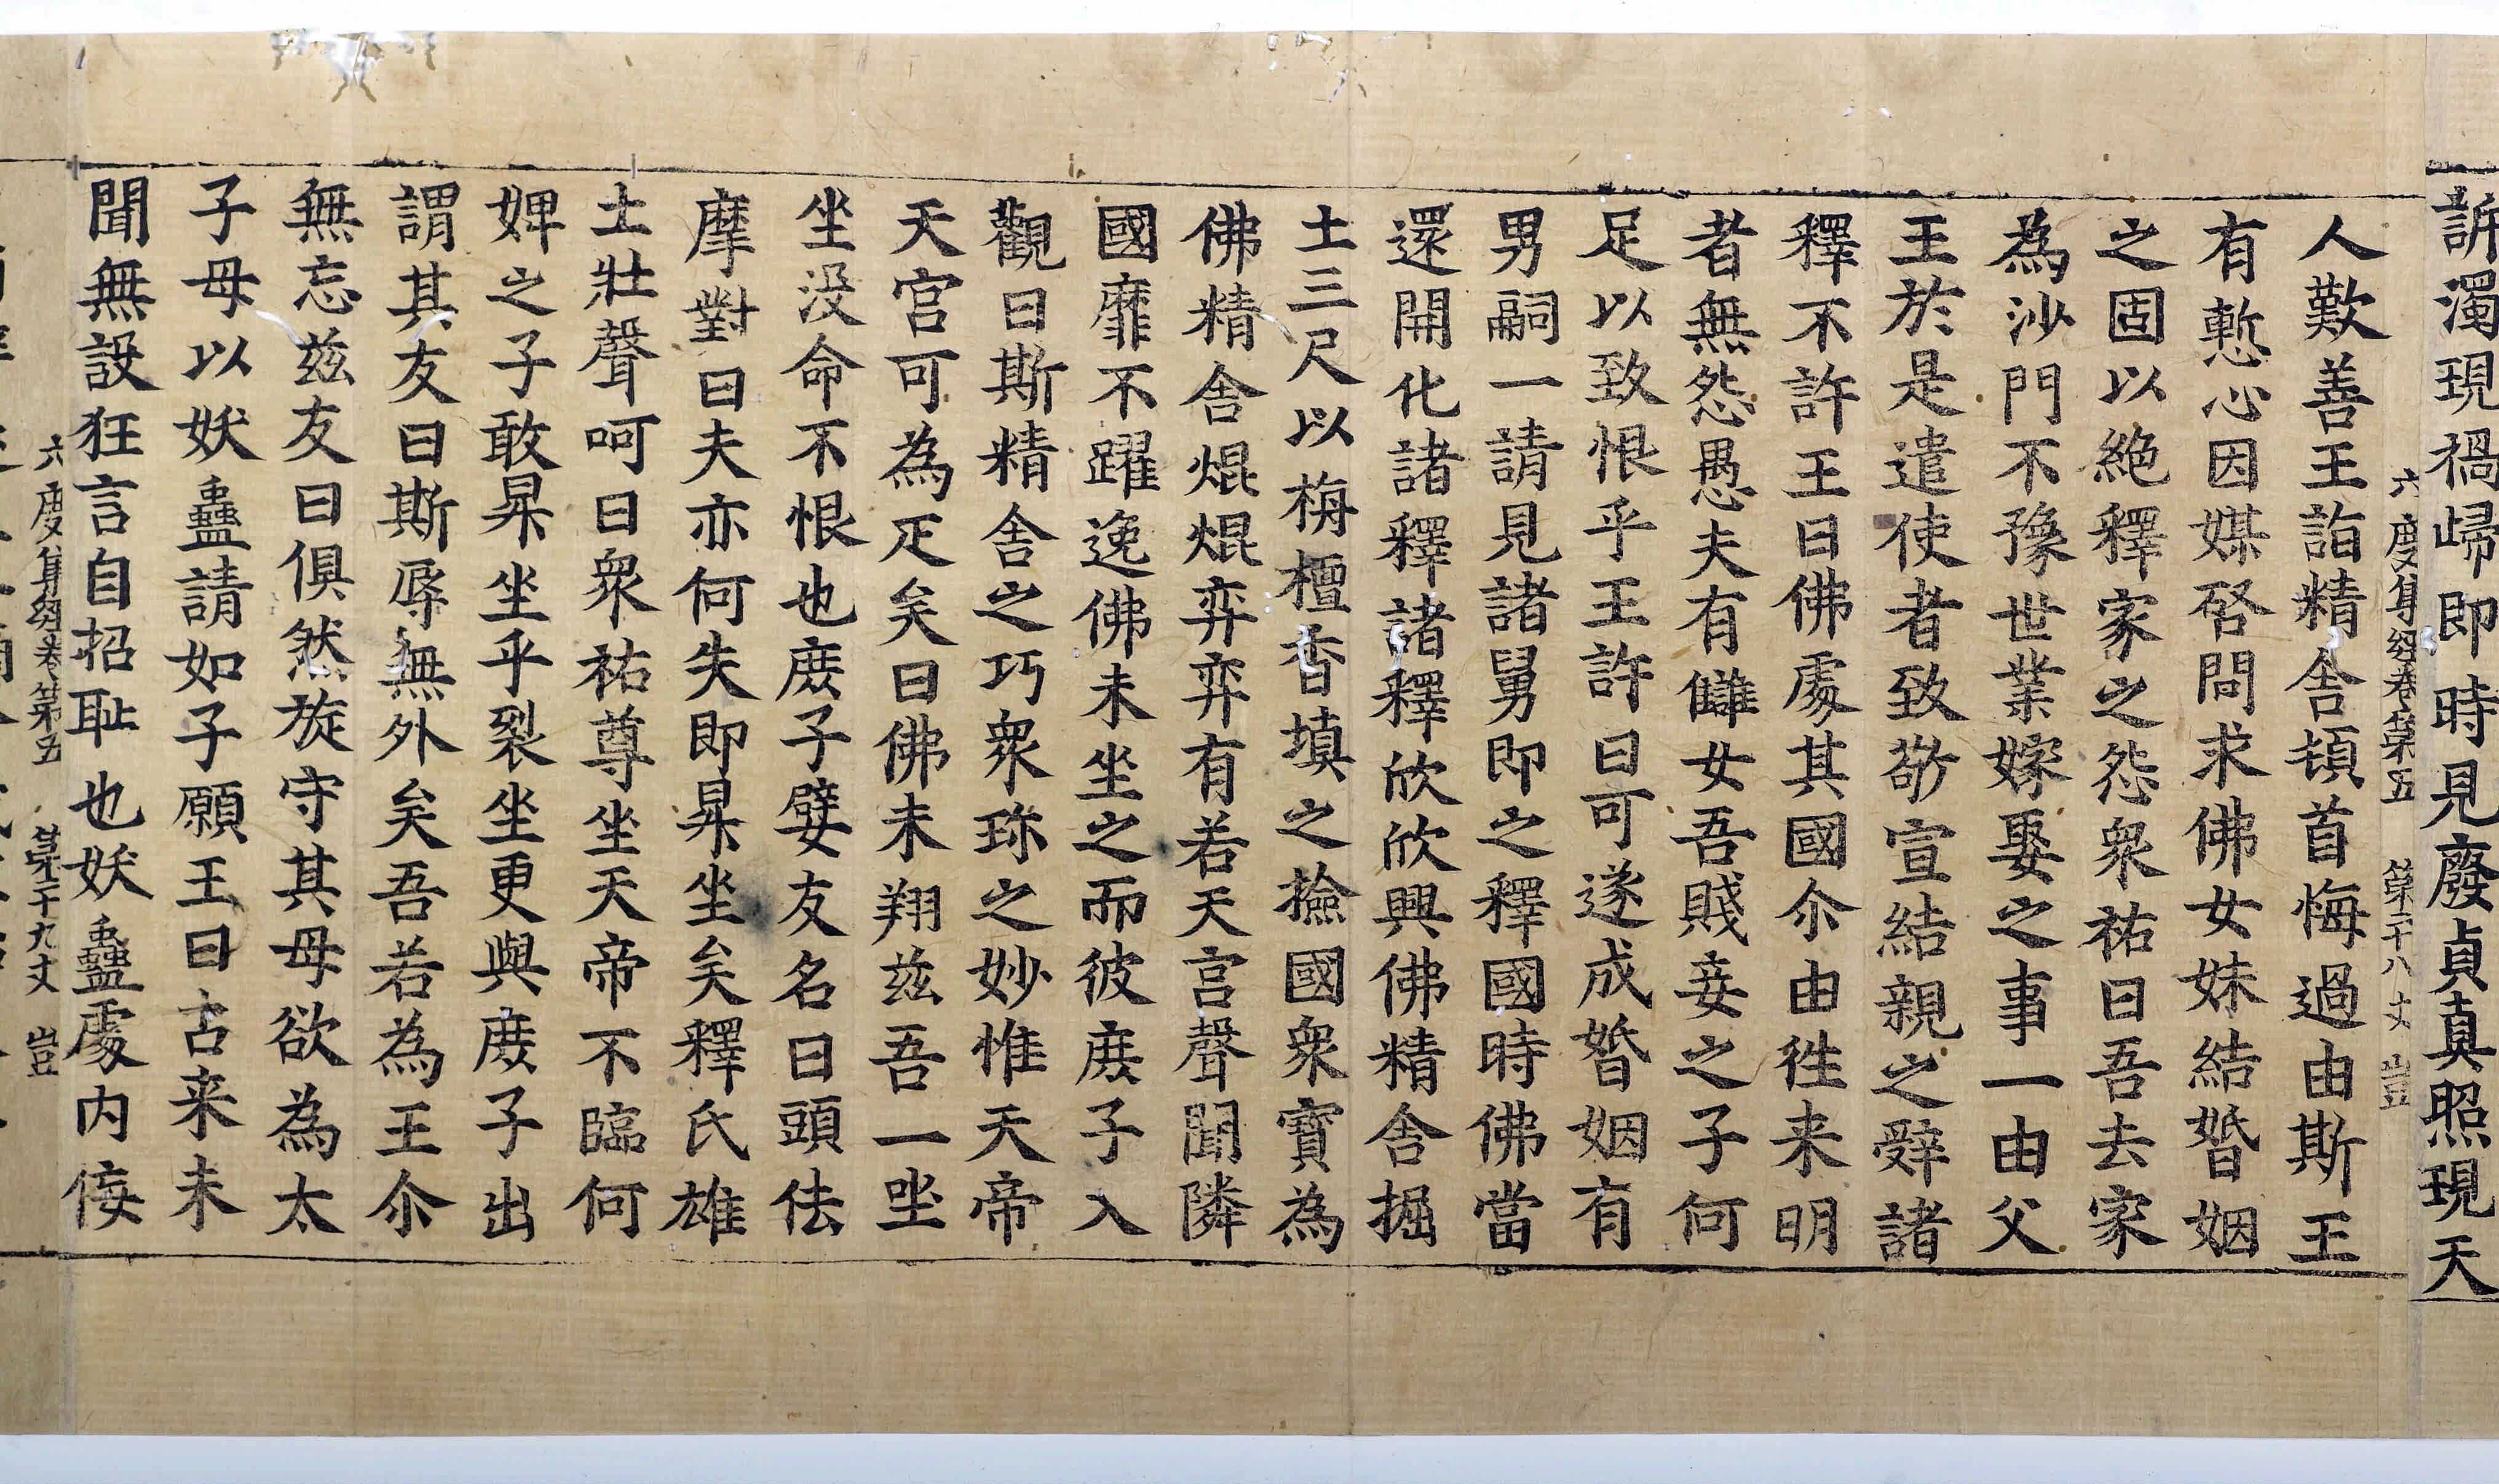 訴濁現禍歸即時見廢貞真照現天
六度集經卷第五 第二十八丈 豈
人歎善王詣精舍頓首悔過由斯王
有慙心因媒啓問求佛女妹結婚姻
之固以絶釋家之怨衆祐曰吾去家
為沙門不豫世業嫁娶之事一由父
王於是遣使者致敬宣結親之辭諸
釋不許王曰佛處其國尒由徃来明
者無怨愚夫有讎女吾賤妾之子何
足以致恨乎王許曰可遂成婚姻有
男嗣一請見諸舅即之釋國時佛當
還開化諸釋諸釋欣欣興佛精舍掘
土三尺以栴檀香填之撿國衆寶為
佛精舍焜焜弈弈有若天宫聲聞隣
國靡不躍逸佛未坐之而彼庻子入
觀曰斯精舍之巧衆珎之妙惟天帝
天宫可為疋矣曰佛未翔兹吾一坐
坐没命不恨也庻子嬖友名曰頭佉
摩對曰夫亦何失即昇坐矣釋氏雄
士壯聲呵曰衆祐尊坐天帝不臨何
婢之子敢昇坐乎裂坐更興庻子出
謂其友曰斯辱無外矣吾若為王尒
無忘兹友曰俱然旋守其母欲為太
子母以妖蠱請如子願王曰古来未
聞無設狂言自招耻也妖蠱處内佞
六度集經卷第五 第二十九丈 豈